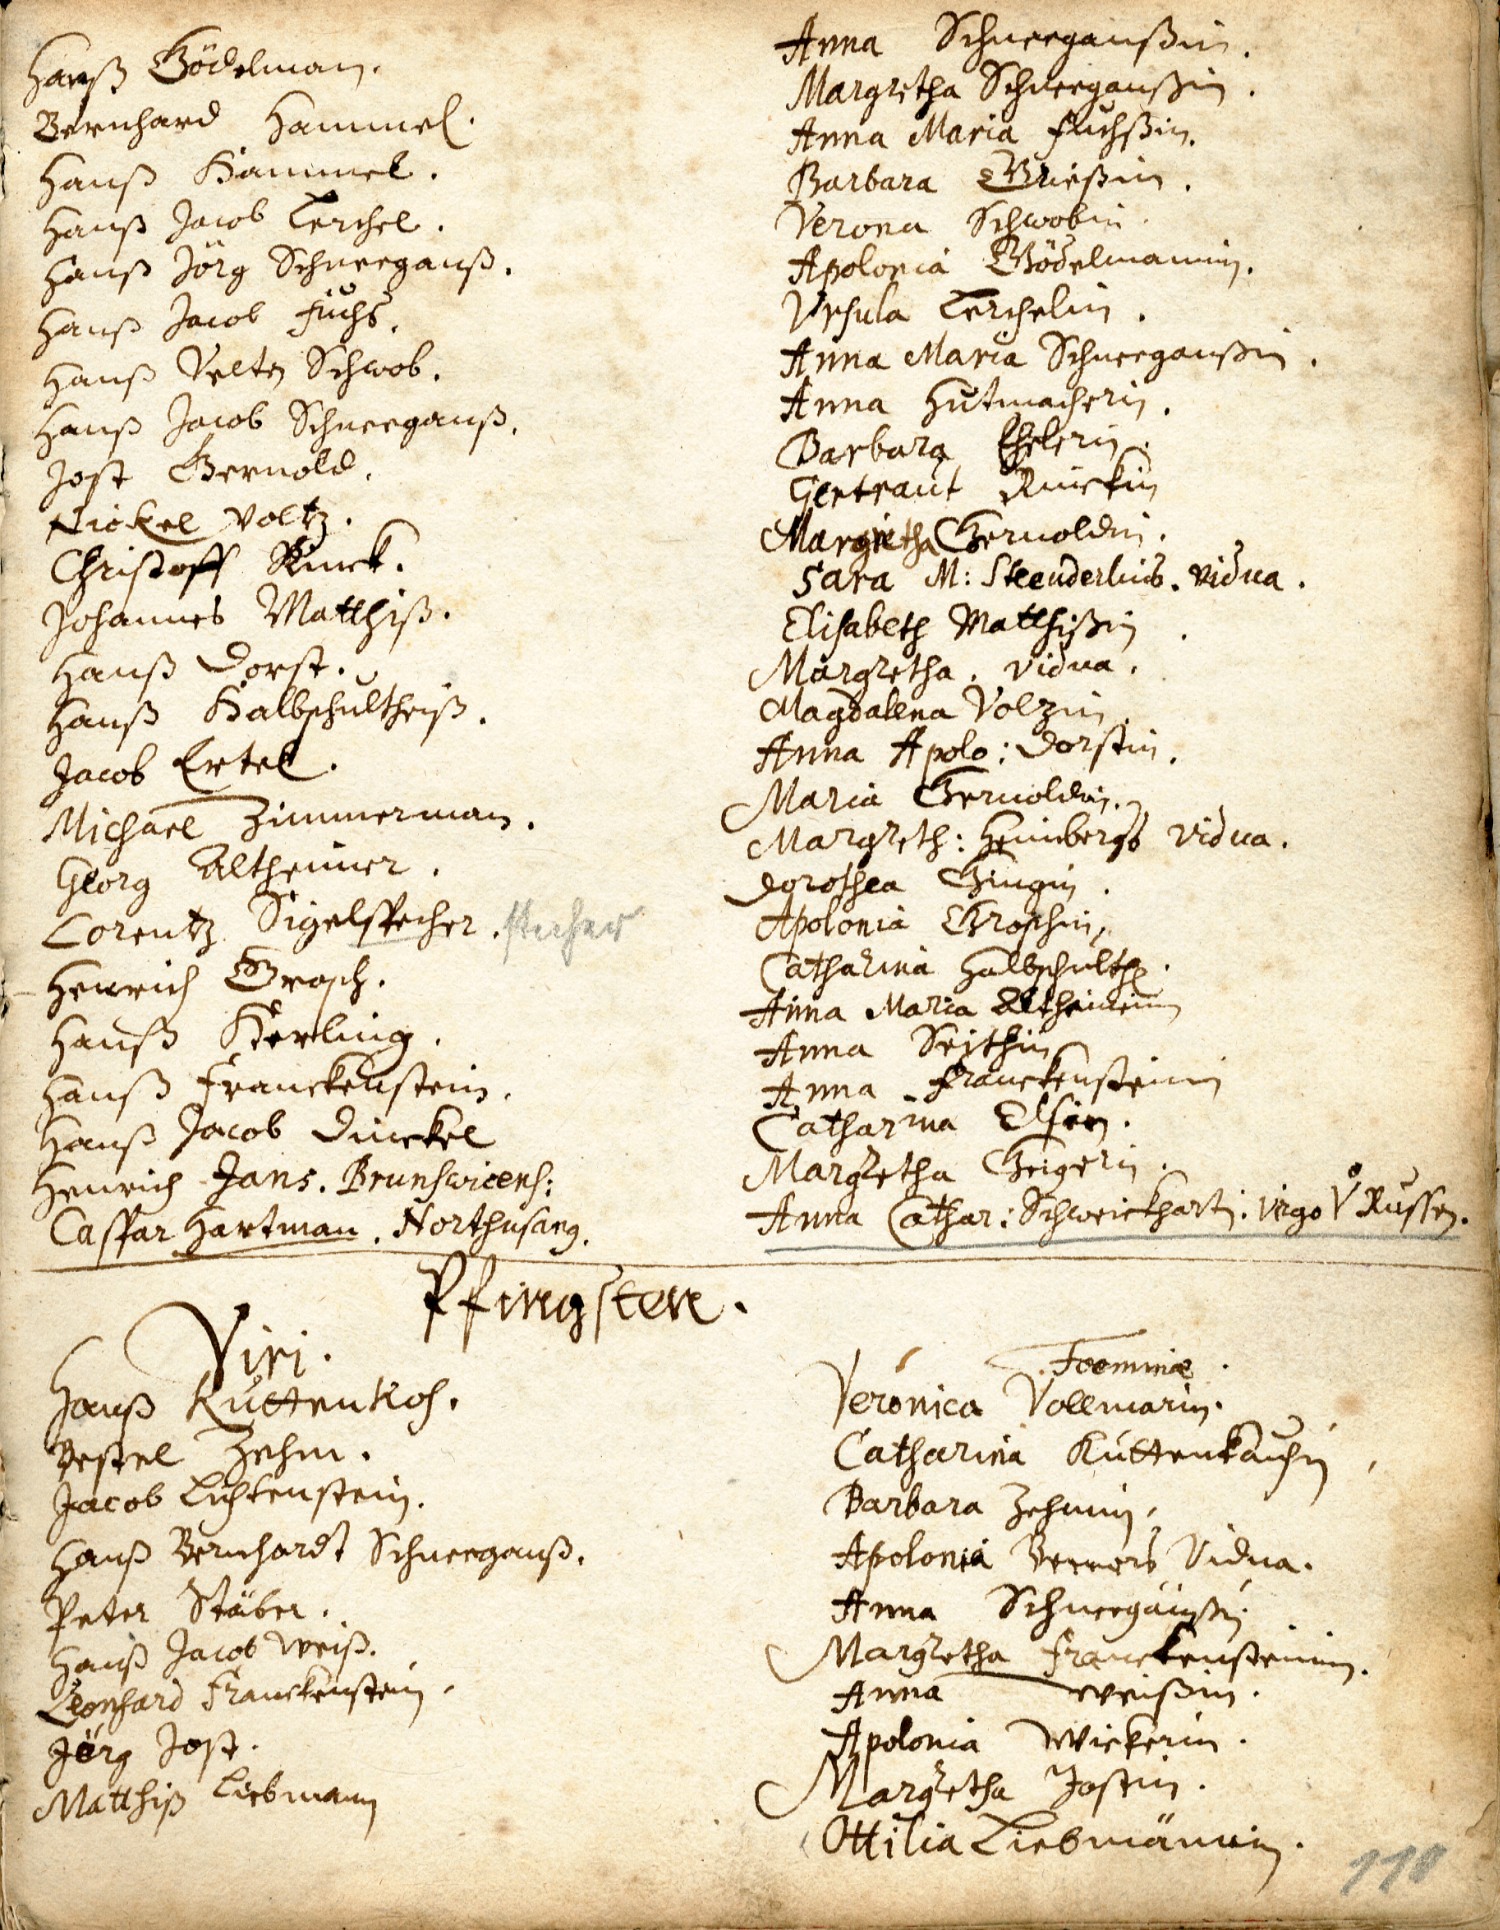 Hanß Gödelman.
Bernhard Hammel.
Hanß Hammel.
Hanß Jacob Lerchel.
Hanß Jörg Schneeganß.
Hanß Jacob Fuchs.
Hanß Velten Schwob.
Hanß Jacob Schneeganß.
Jost Gernold.
Nickel Voltz.
Christoff Rinck.
Johannes Matthiß.
Hanß Dorst.
Hanß Kalbschultheiß.
Jacob Ertel.
Michael Zimmerman.
Georg Altheimer.
Lorentz Sigelspecher. stecher
Henrich Grosch.
Hanß Kerling.
Hanß Franckenstein.
Hanß Jacob Dinckel
Henrich Jans. Brunswicens:
Caspar Hartman. Northusang.
Anna Schneeganßin.
Margretha Schneeganßin.
Anna Maria Fuchßin.
Barbara Grießin.
Verona Schwobin.
Apolonia Gödelmannin.
Ursula Lerchelin.
Anna Maria Schneeganßin.
Anna Hutmacherin.
Barbara
Gertraut Rinckin
Margretha Gernoldin.
Sara M: Steuderlins. Vidua.
Elisabeth Matthißin.
Margretha. Vidua.
Magdalena Volzin.
Anna Apolo: Dorstin.
Maria Gernoldin.
Margreth: Heinbergs Vidua.
Dorothea Gingin.
Apolonia Groschin,
Catharina Halbschulth.
Anna Maria Altheimerin
Anna Seithin
Anna Franckensteinin
Catharina Elsen.
Margretha Geigerin.
Anna Cathar: Schweickhartin: Virgo V Russen.
Pfingsten.
Viri.
Hanß Kuttenkoh.
Vestel Zehm.
Jacob Lichtenstein.
Hanß Bernhardt Schneeganß.
Peter Stäber.
Hanß Jacob Weiß.
Leonhard Franckenstein.
Jörg Jost.
Matthiß Liebmann
Foeminae.
Veronica Vollmarin.
Catharina Kuttenkauhin,
Barbara Zehmin,
Apolonia Vidua.
Anna Schneegänßin.
Margretha Franckensteinin.
Anna Weißin.
Apolonia Wickerin.
Margretha Jostin.
Ottilia Liebmännin.
110